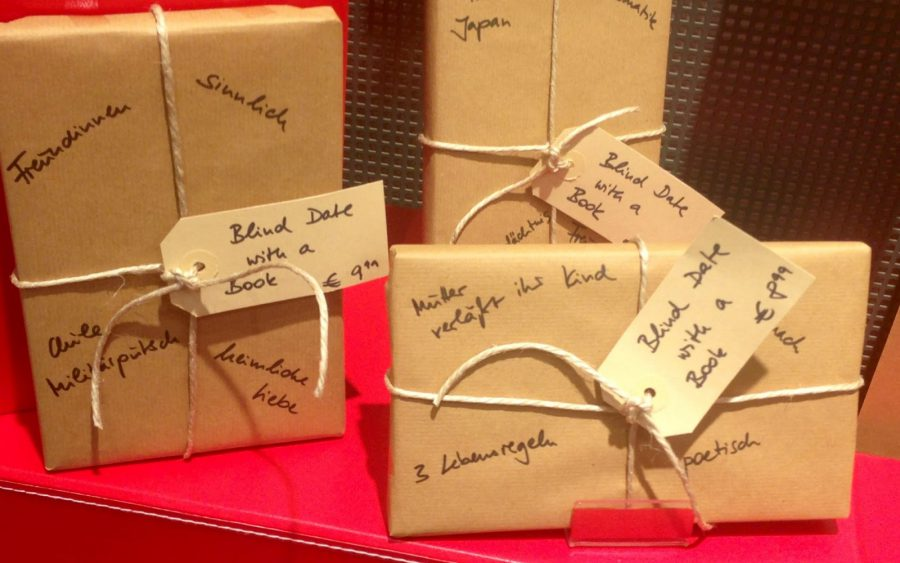 Freundinnen
Sinnlich
Blind Date
with a
Book € 9,99
Chile
Militärputsch
heimliche
Liebe
Japan
Blind Date
with a
Book
Mutter
verläßt ihr Kind
Blind Date
with a
Book € 8,99
3 Lebensregeln
poetisch